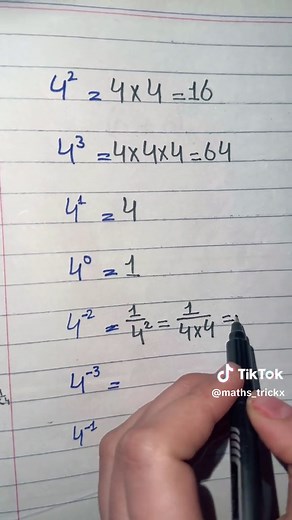 4² = 4×4 = 16
4³ = 4×4×4 = 64
4¹ = 4
4⁰ = 1
4⁻² = 1/4² = 1/4×4 =
4⁻³ =
4⁻¹
TikTok
@maths_trickx